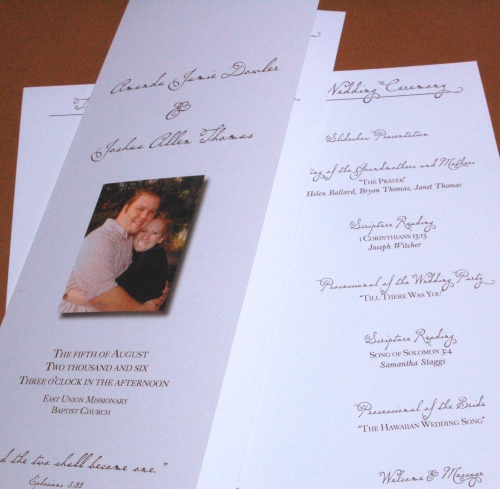 Amanda Jamie Dowler
&
Joshua Allen Thomas
The fifth of August
Two thousand and six
Three o'clock in the afternoon
East Union Missionary
Baptist Church
the two shall become one."
Ephesians
Wedding Ceremony
Slideshow Presentation
of the Grandmothers and Mothers
"The Prayer"
Helen Ballard, Bryan Thomas, Janet Thomas
Scripture Reading
1 Corinthians 13:13
Joseph Witcher
Processional of the Wedding Party
"Till There Was You"
Scripture Reading
Song of Solomon 3:4
Samantha Staggs
Processional of the Bride
"The Hawaiian Wedding Song"
Welcome & Message